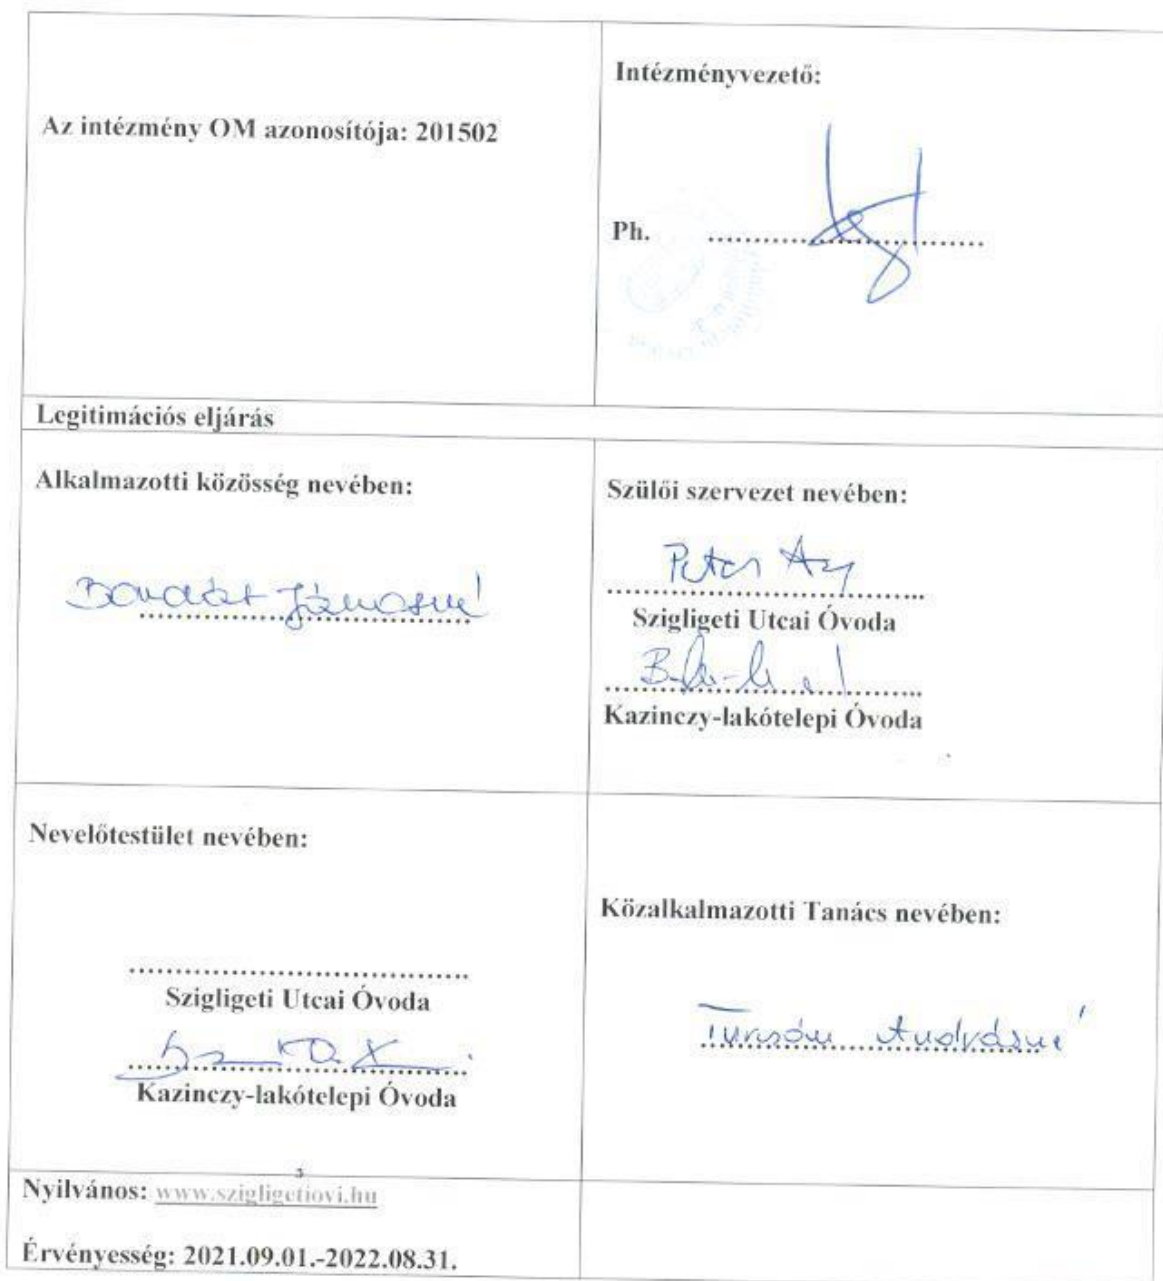 Az intézmény OM azonosítója: 201502
Intézményvezető:
Ph. ....................................
Legitimációs eljárás
Alkalmazotti közösség nevében:
Jánosné
Szülői szervezet nevében:
Peter
Szigligeti Utcai Óvoda
Kazinczy-lakótelepi Óvoda
Nevelőtestület nevében:
....................................
Szigligeti Utcai Óvoda
Kazinczy-lakótelepi Óvoda
Közalkalmazotti Tanács nevében:
Andrásné
3
Nyilvános: www.szigligetiovi.hu
Érvényesség: 2021.09.01.-2022.08.31.